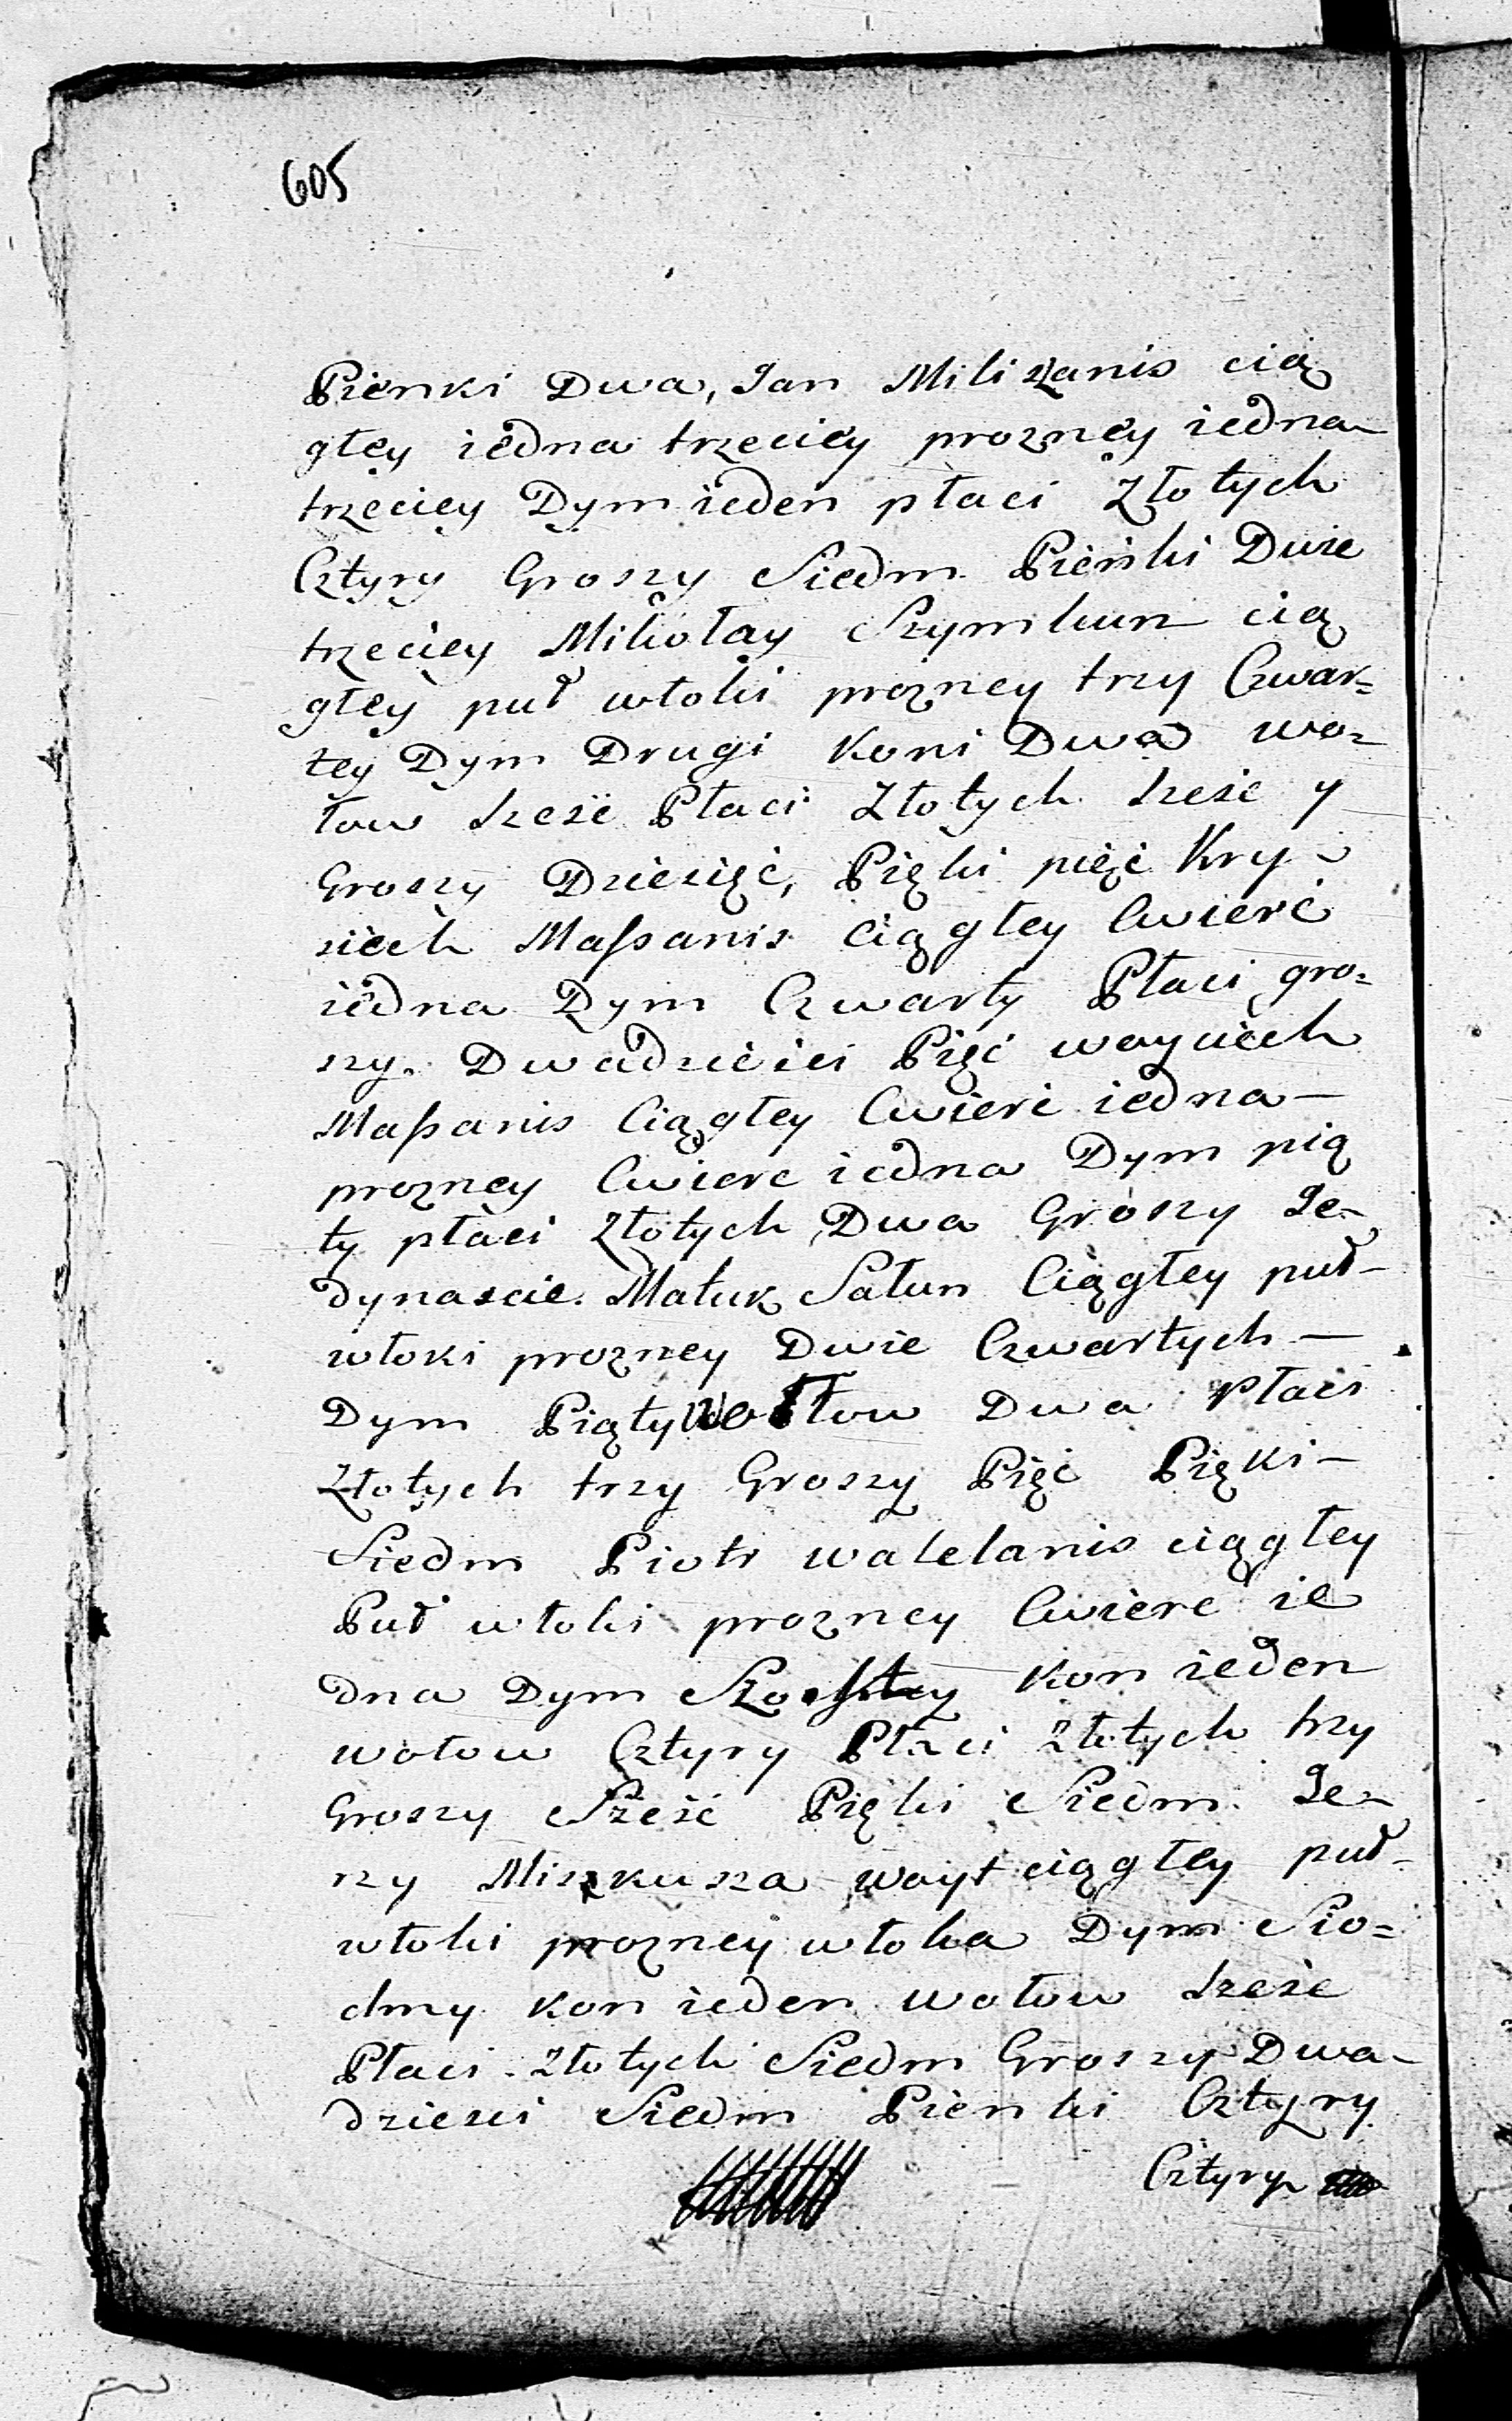 605
Pienki Dwa, Jan Miliszanis cią
głey iedna trzeciey prozney iedna
trzeciey Dym ieden płaci Złotych
Cztyry Groszy Siedm Pieńki Dwie
trzeciey Mikołay Szymkun cią
głey puł włoki prozney trzy Czwar=
tey Dym Drugi Koni Dwa wo=
łow szeźć Płaci Złotych szeźć y
Groszy Dziesięć, Pięki pięć Kry-
sich Maſsanis Ciągłey Cwierć
iedna Dym Czwarty Płaci gro=
szy. Dwadzieści Pięć woyciech
Maſsanis Ciągłey Cwierć iedna –
prozney Cwierc iedna Dym pią
ty płaci Złotych Dwa Groszy Je-
dynascie. Matuk Satun Ciągłey puł-
włoki prozney Dwie Czwartych –
Dym Piąty Wołow Dwa Płaci
Złotych trzy Groszy Pięć Pięki –
Siedm Piotr walelanis ciągłey
Puł włoki prozney Cwierc ie
dna Dym Szosty Kon ieden
wołow Cztyry Płaci Złotych trzy
Groszy Szeźć Pięki Siedm Je-
rzy Miszkusza woyt ciągłey puł-
włoki prozney włoka Dym Sio=
dmy Kon ieden wołow szeźć
Płaci Złotych Siedm Groszy Dwa-
dziesci Siedm Pienki Cztyry
Cztyry